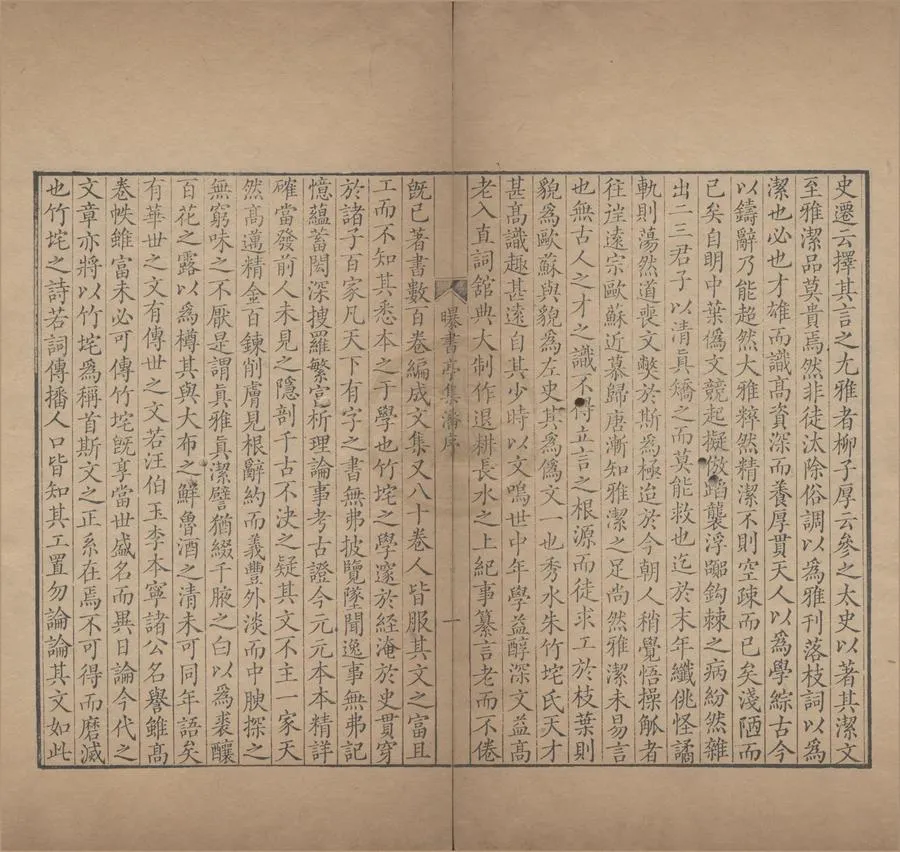 史遷云擇其言之尤雅者柳子厚云參之太史以著其潔文
至雅潔品莫貴焉然非徒汰除俗調以爲雅刊落枝詞以爲
潔也必也才雄而識高資深而養厚貫天人以爲學綜古今
以鑄辭乃能超然大雅粹然精潔不則空疎而已矣淺陋而
已矣自明中葉僞文競起擬倣蹈襲浮豔鈎棘之病紛然雜
出二三君子以清眞矯之而莫能救也迄於末年纖佻怪譎
軌則蕩然道喪文獘於斯爲極迨於今朝人稍覺悟操觚者
往往遠宗歐蘇近慕歸唐漸知雅潔之足尚然雅潔未易言
也無古人之才之識不得立言之根源而徒求工於枝葉則
貌爲歐蘇與貌爲左史其爲僞文一也秀水朱竹垞氏天才
甚高識趣甚遠自其少時以文鳴世中年學益醇深文益高
老入直詞館典大制作退耕長水之上紀事纂言老而不倦
曝書亭集潘序
一
旣已著書數百卷編成文集又八十卷人皆服其文之富且
工而不知其悉本之于學也竹垞之學邃於經淹於史貫穿
於諸子百家凡天下有字之書無弗披覽墜聞逸事無弗記
憶蘊蓄閎深搜羅繁富析理論事考古證今元元本本精詳
確當發前人未見之隱剖千古不決之疑其文不主一家天
然高邁精金百鍊削膚見根辭約而義豐外淡而中腴探之
無窮味之不厭是謂眞雅眞潔譬猶綴千腋之白以爲裘釀
百花之露以爲樽其與大布之鮮魯酒之清未可同年語矣
有華世之文有傳世之文若汪伯玉李本寧諸公名譽雖高
卷帙雖富未必可傳竹垞旣享當世盛名而異日論今代之
文章亦將以竹垞爲稱首斯文之正系在焉不可得而磨滅
也竹垞之詩若詞傳播人口皆知其工置勿論論其文如此